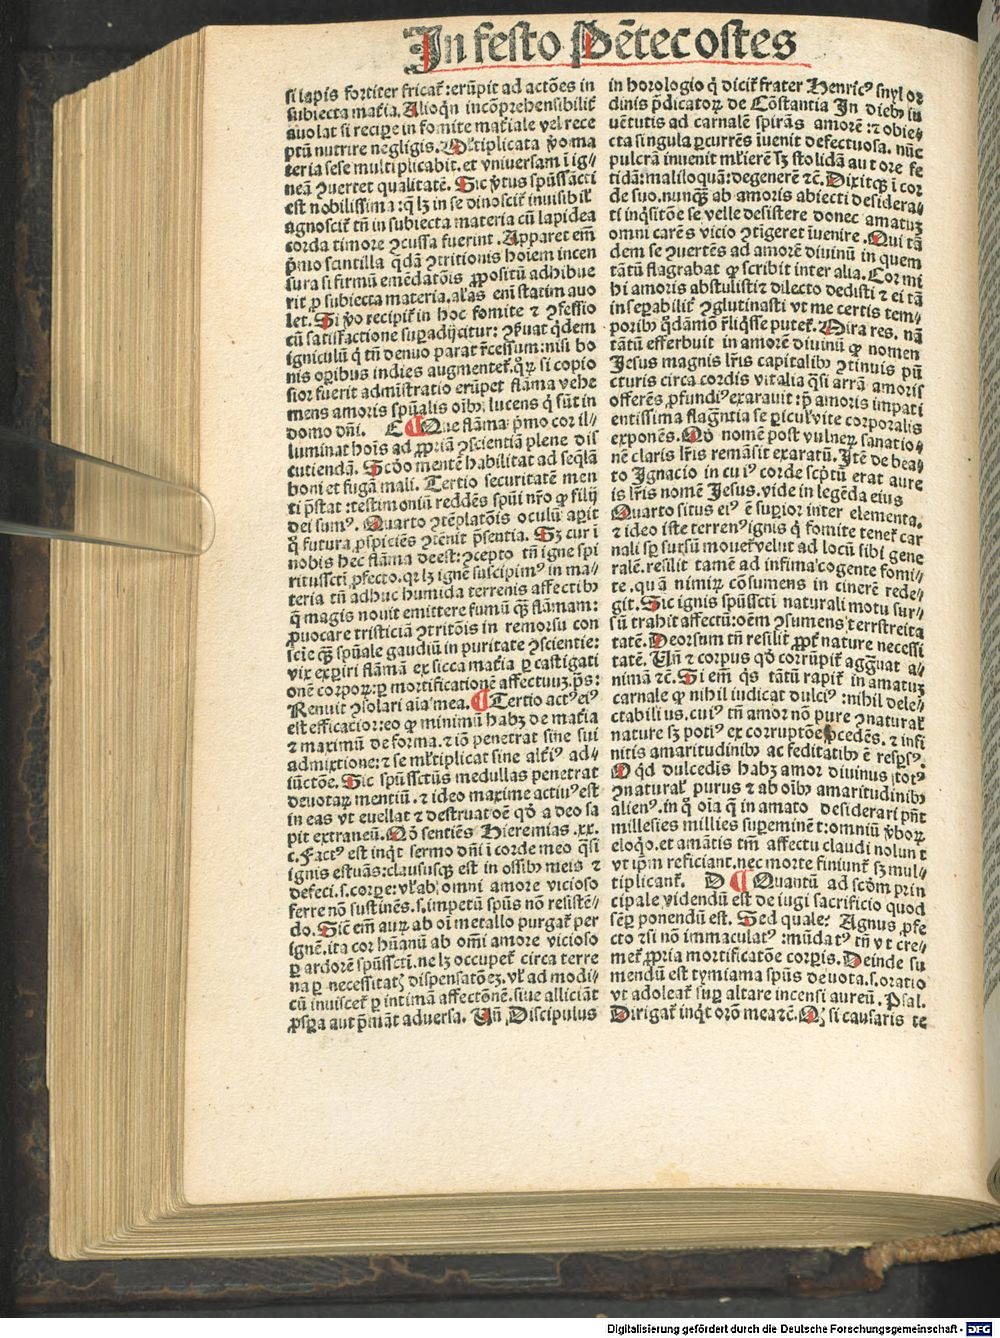 In festo Pētecostes
si lapis fortiter fricat᷑:erūpit ad actōes in
subiecta mat᷑ia. Alioqn incōprehensibilit᷑
auolat si recipe in fomite mat᷑iale vel rece
ptū nutrire negligis. Mltiplicata v̊o ma
teria sese multiplicabit. et vniuersam ī ig⸗
neā ꝯuertet qualitatē. Sic v̊tus spūssācti
est nobilissima: q̄ lꝫ in se dinoscit᷑ inuisibil᷑
agnoscit᷑ tn̄ in subiecta materia cū lapidea
corda timore ꝯcussa fuerint. Apparet em̄
p̄mo scintilla q̄dā ꝯtritionis hoiem incen
sura si firmū emēdatōis ꝓpositū adhibue
rit ꝑ subiecta materia. al̓as em̄ statim auo
let. Si v̊o recipit᷑ in hoc fomite ⁊ ꝯfessio
cū satisfactione suꝑadijciatur: ꝯẜuat q̇dem
igniculū q̇ tn̄ denuo parat r̄cessum: nisi bo
nis oꝑibus indies augmentet᷑. q̇ꝝ si copio
sior fuerit admīstratio erūpet flāma vehe
mens amoris spūalis oībꝫ lucens q̇ sūt in
domo dn̄i. C ¶ Que flāma p̄mo cor il⸗
luminat hoīs ad ꝓpriā ꝯscientiā plene dis
cutiendā. Scd̄o mentē habilitat ad seq̄lā
boni et fugā mali. Tertio securitatē men
ti p̄stat: testimoniū reddēs spūi nr̄o ꝙ filij
dei sumꝰ. Quarto ꝯtēplatōis oculū aꝑit
q̇ futura ꝓspiciēs ꝯtēnit p̄sentia. Sꝫ cur ī
nobis hec flāma deest: ꝯcepto tn̄ igne spi
ritussctī ꝓfecto. qꝛ lꝫ ignē suscipimꝰ in ma⸗
teria tn̄ adhuc humida terrenis affectibꝫ
q̄ magis nouit emittere fumū qꝫ flāmam:
ꝓuocare tristiciā ꝯtritōis in remorsu con
scīe qꝫ spūale gaudiū in puritate ꝯscientie:
vix exꝑiri flāmā ex sicca mat᷑ia ꝑ castigati
onē corpoꝝ: ꝑ mortificationē affectuuꝫ. ps̄:
Renuit ꝯsolari aīa mea. ¶ Tertio actꝰ eiꝰ
est efficacior: eo ꝙ minimū habꝫ de mat᷑ia
⁊ maximū de forma. ⁊ iō penetrat sine sui
admixtione: ⁊ se ml̓tiplicat sine alt᷑iꝰ ad⸗
iūctōe. Sic spūssctūs medullas penetrat
deuotaꝝ mentiū. ⁊ ideo maxime actiuꝰ est
in eas vt euellat ⁊ destruat oē qd̓ a deo sa
pit extraneū. Qd̓ sentiēs Hieremias .xx.
c. Factꝰ est inq̇t sermo dn̄i ī corde meo q̄si
ignis estuās: claususqꝫ est in ossibꝫ meis ⁊
defeci. s. corꝑe: vl̓ ab omni amore vicioso
ferre nō sustinēs. s. impetū spūs nō resistē⸗
do. Sic em̄ aurꝫ ab oī metallo purgat᷑ per
ignē. ita cor hūanū ab om̄i amore vicioso
ꝑ ardorē spūssctī. ne lꝫ occupet᷑ circa terre
na ꝑ necessitatꝭ dispensatōeꝫ. vl̓ ad modi⸗
cū inuiscet᷑ ꝑ intimā affectōnē. siue alliciāt
ꝓsꝑa aut p̄māt aduersa. Un̄ Discipulus
in horologio q̇ dicit᷑ frater Henricꝰ snyl or
dinis p̄dicatoꝝ de Cōstantia In diebꝫ iu
uētutis ad carnalē spirās amorē: ⁊ obie⸗
cta singula ꝑcurrēs īuenit defectuosa. nūc
pulcrā inuenit ml̓ierē sꝫ stolidā aut ore fe
tidā: maliloquā: degenerē ⁊c̄. Dixitqꝫ ī cor
de suo. nunqꝫ ab amoris abiecti desidera⸗
ti inq̇sitōe se velle desistere donec amatuꝫ
omni carēs vicio ꝯtigeret īuenire. Qui tā
dem se ꝯuertēs ad amorē diuinū in quem
tātū flagrabat ꝙ scribit inter alia. Cor mi
hi amoris abstulisti ⁊ dilecto dedisti ⁊ ei tā
inseꝑabilit᷑ ꝯglutinasti vt me certis tem⸗
poribꝫ q̇dāmō r̄liq̇sse putet᷑. Mira res. nā
tātū efferbuit in amorē diuinū ꝙ nomen
Jesus magnis lr̄is capitalibꝫ ꝯtinuis pū
cturis circa cordis vitalia q̄si arrā amoris
offerēs ꝓfundiꝰ exarauit: p̄ amoris impati
entissima flagr̄ntia se ꝑicul᷑ vite corporalis
exponēs. Qd̓ nomē post vulneꝝ sanatio⸗
nē claris lr̄is remāsit exaratū. Itē de bea⸗
to Ignacio in cuiꝰ corde scp̄tū erat aure
is lr̄is nomē Jesus. vide in legēda eius
Quarto situs eiꝰ ē suꝑior inter elementa.
⁊ ideo iste terrenꝰ ignis q̇ fomite tenet᷑ car
nali sꝑ sursū mouet᷑ velut ad locū sibi gene
ralē. resilit tamē ad infima cogente fomi⸗
te. quā nimiꝝ cōsumens in cinerē rede⸗
git. Sic ignis spūssctī naturali motu sur⸗
sū trahit affectū: oēm ꝯsumens terrstreita
tatē. Deorsum tn̄ resilit ꝓpt᷑ nature necessi
tatē. Un̄ ⁊ corpus qd̓ corrūpit᷑ aggᷓuat a⸗
nimā ⁊c̄. Si em̄ q̇s tātū rapit᷑ in amatuꝫ
carnale ꝙ nihil iudicat dulciꝰ: nihil dele⸗
ctabilius. cuiꝰ tn̄ amor nō pure ꝯnatural᷑
nature sꝫ potiꝰ ex corruptōe ꝓcedēs. ⁊ infi
nitis amaritudinibꝫ ac feditatibꝫ ē respsꝰ.
O q̇d dulcedīs habꝫ amor diuinus totꝰ
ꝯnatural᷑ purus ⁊ ab oībꝫ amaritudinibꝫ
alienꝰ. in q̇ oīa q̄ in amato desiderari pn̄t
millesies millies suꝑeminēt: omniū v̊boꝝ
eloq̇o. et amātis tm̄ affectu claudi nolunt
vt ip̄m reficiant. nec morte finiunt᷑ sꝫ mul⸗
tiplicant᷑. D ¶ Quantū ad scdm̄ prin
cipale videndū est de iugi sacrificio quod
sēꝑ ponendū est. Sed quale? Agnus ꝑfe
cto ⁊ si nō immaculatꝰ: mūdatꝰ tn̄ vt cre⸗
met᷑ ꝓpria mortificatōe corꝑis. Deinde su
mendū est tymiama spūs deuota. s. oratio
vt adoleat᷑ suꝑ altare incensi aureū. Psal.
Dirigat᷑ inq̇t orō mea ⁊c̄. Qꝫ si causaris te
Digitalisierung gefördert durch die Deutsche Forschungsgemeinschaft - DFG